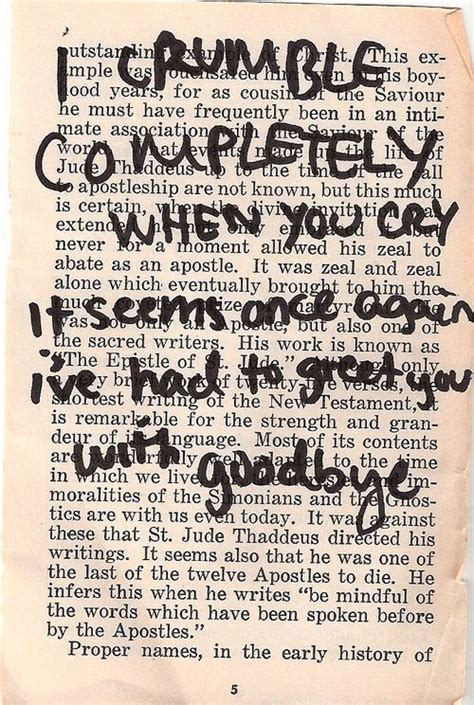 I CRUMBLE
COMPLETELY
WHEN YOU CRY
it seems once again
i've had to greet you
with goodbye
outstanding example of Christ. This ex-
ample was vouchsafed him even in his boy-
hood years, for as cousin of the Saviour
he must have frequently been in an inti-
mate association with the Saviour of the
world. What events made up the life of
Jude Thaddeus up to the time of the call
to apostleship are not known, but this much
is certain, when the divine invitation was
extended only but
never for a moment allowed his zeal to
abate as an apostle. It was zeal and zeal
alone which eventually brought to him the
much prize martyrdom. He
was not only an Apostle, but also one of
the sacred writers. His work is known as
"The Epistle of St. Jude." Although only
a very brief work of twenty-five verses, the
shortest writing of the New Testament, it
is remarkable for the strength and gran-
deur of its language. Most of its contents
are wonderfully well adapted to the time
in which we live, for the im-
moralities of the Simonians and the Gnos-
tics are with us even today. It was against
these that St. Jude Thaddeus directed his
writings. It seems also that he was one of
the last of the twelve Apostles to die. He
infers this when he writes "be mindful of
the words which have been spoken before
by the Apostles."
Proper names, in the early history of
5